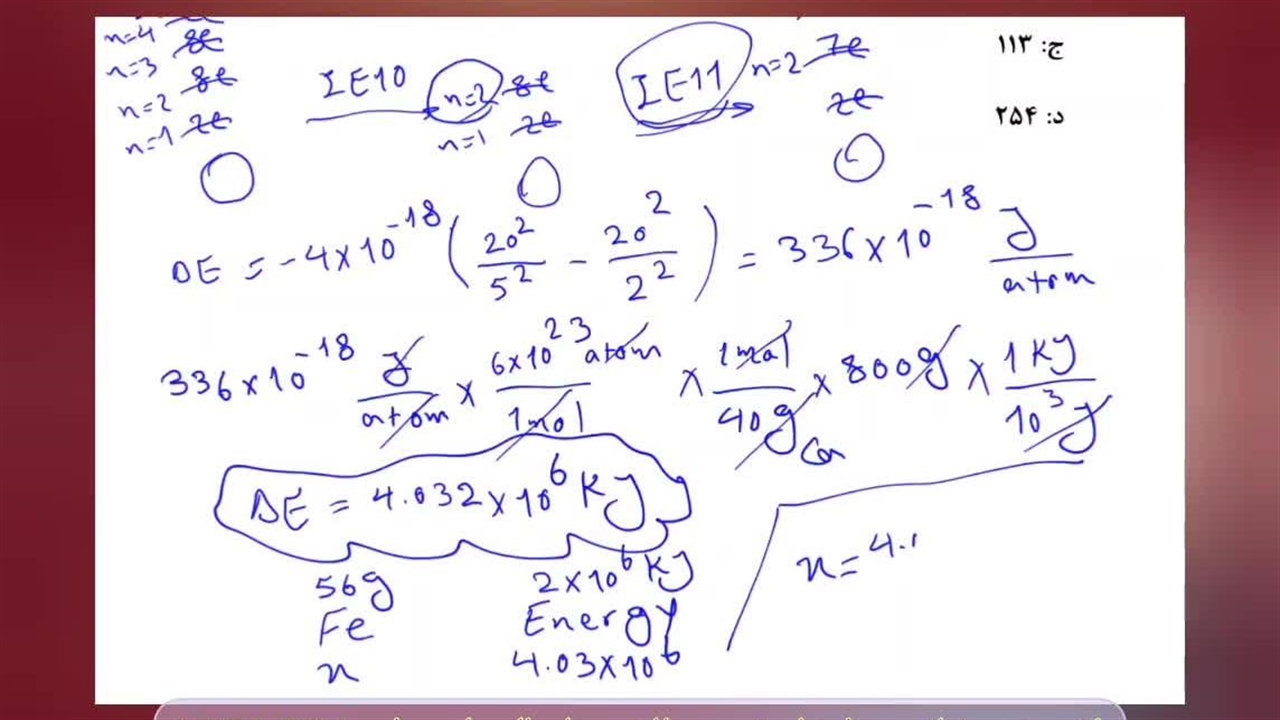 n=4 8e
n=3 8e
n=2 8e
n=1 2e
IE10
n=2 8e
n=1 2e
IE11
n=2 7e
2e
ج: ۱۱۳
د: ۲۵۴
DE = -4×10^-18 (20^2/5^2 - 20^2/2^2) = 336×10^-18 J/atom
336×10^-18 J/atom × 6×10^23 atom/1mol × 1mol/40g Ca × 800g × 1KJ/10^3 J
DE = 4.032×10^6 KJ
56g 2×10^6 KJ
Fe Energy
x 4.03×10^6
x = 4.0